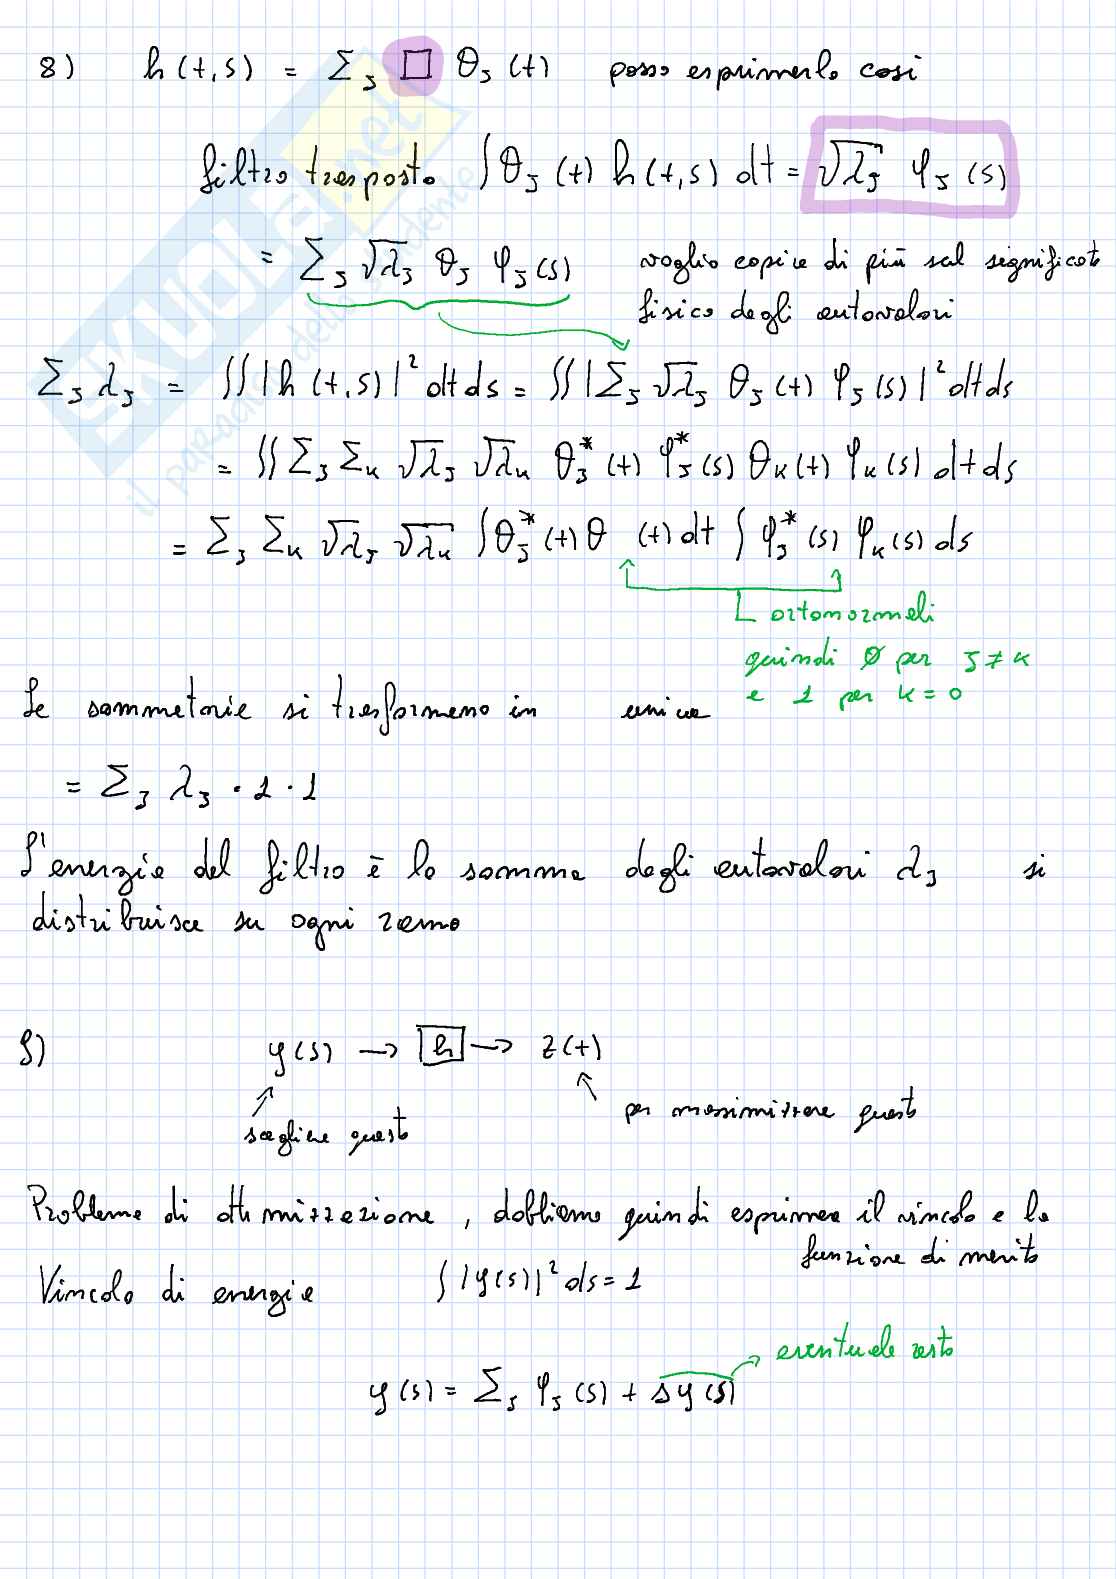 8) h(t,s) = Σ_j □ θ_j(t) posso esprimerlo così
filtro trasposto ∫θ_j(t) h(t,s) dt = √λ_j φ_j(s)
= Σ_j √λ_j θ_j φ_j(s) voglio capire di più sul significato
fisico degli autovalori
Σ_j λ_j = ∬|h(t,s)|² dt ds = ∬|Σ_j √λ_j θ_j(t) φ_j(s)|² dt ds
= ∬ Σ_j Σ_k √λ_j √λ_k θ_j*(t) φ_j*(s) θ_k(t) φ_k(s) dt ds
= Σ_j Σ_k √λ_j √λ_k ∫θ_j*(t) θ (t) dt ∫ φ_j*(s) φ_k(s) ds
ortonormali
quindi 0 per j ≠ k
e 1 per k = 0
Le sommatorie si trasformano in unica
= Σ_j λ_j · 1 · 1
L'energia del filtro è la somma degli autovalori λ_j si
distribuisce su ogni ramo
9) y(s) → h → z(t)
scegliere questo
per massimizzare questo
Problema di ottimizzazione, dobbiamo quindi esprimere il vincolo e la
funzione di merito
Vincolo di energia ∫|y(s)|² ds = 1
eventuale resto
y(s) = Σ_j φ_j(s) + Δy(s)
SKUOLA.net
il paradiso dello studente